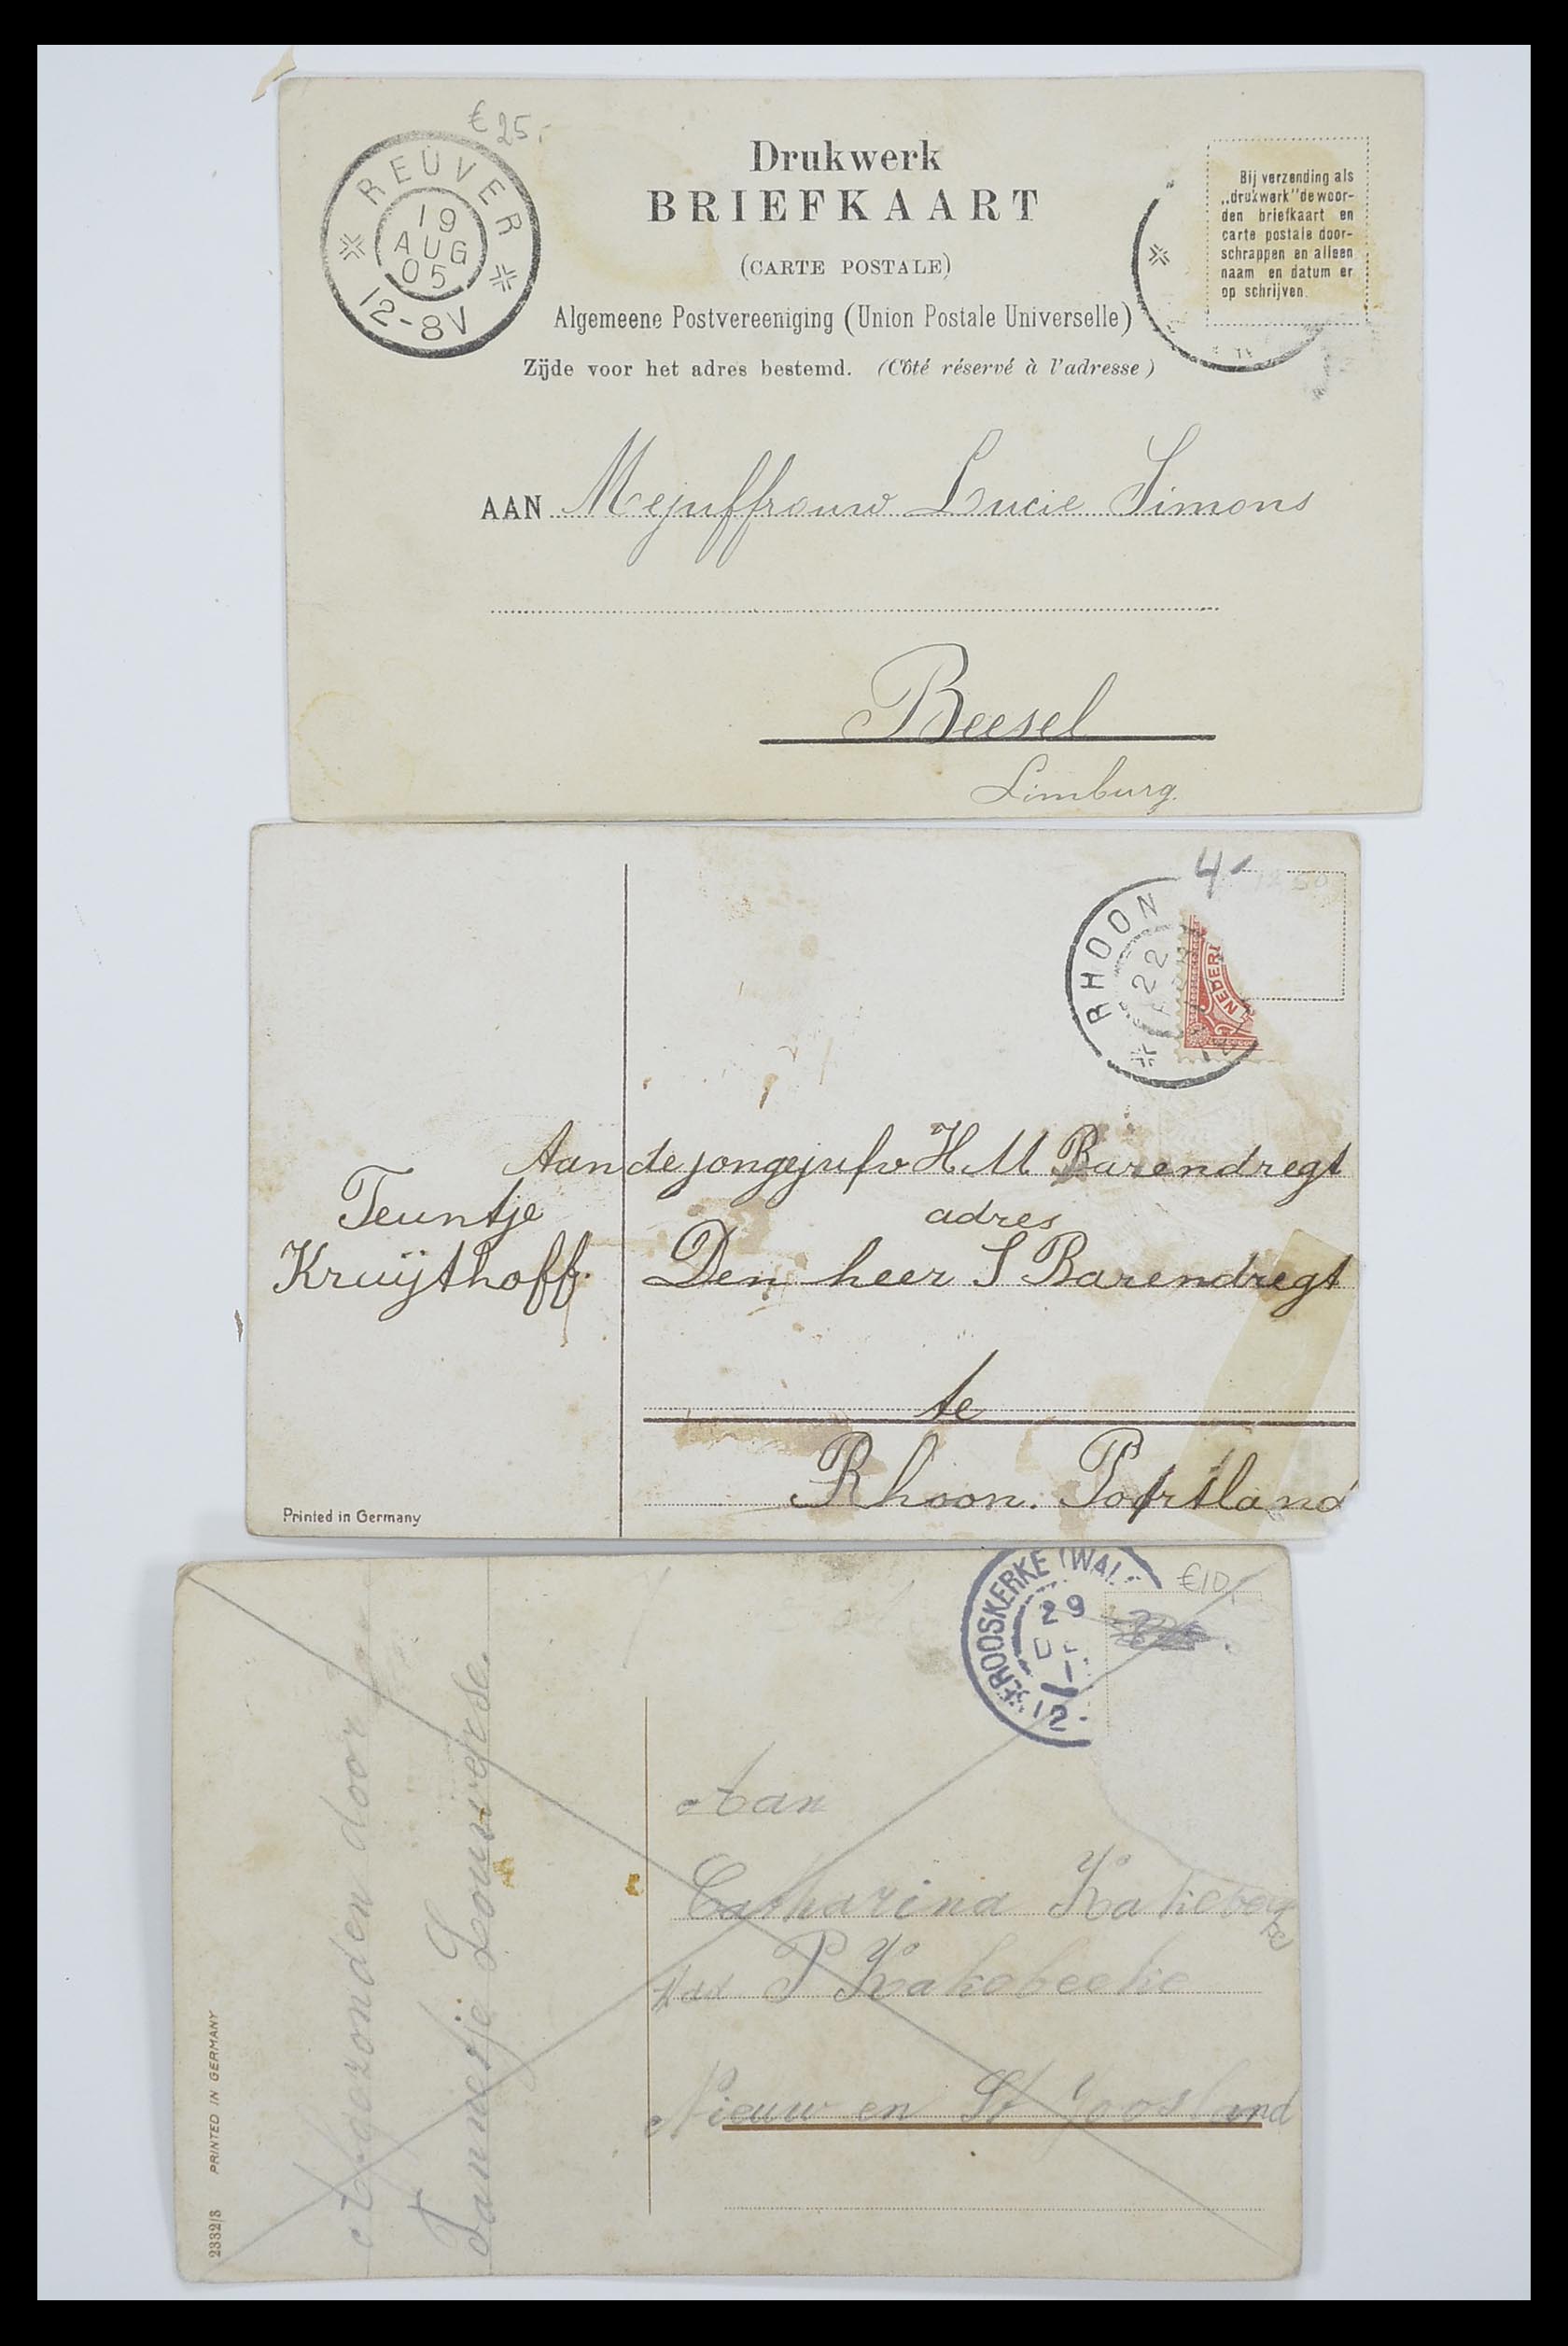 € 25,-
REUVER
19
AUG
05
12-8V
Drukwerk
BRIEFKAART
(CARTE POSTALE)
Algemeene Postvereeniging (Union Postale Universelle)
Zijde voor het adres bestemd. (Côté réservé à l'adresse)
Bij verzending als
„drukwerk" de woor-
den briefkaart en
carte postale door-
schrappen en alleen
naam en datum er
op schrijven.
AAN Mejuffrouw Lucie Simons
Beesel
Limburg.
4,-
12 50
RHOON
22
NEDERL
Aan de jongejufv H. M Barendregt
adres
Teuntje
Kruijthoff.
Den heer S Barendregt
te
Rhoon. Poortland
Printed in Germany
€10,-
SEROOSKERKE (WAL
29
12
Aan
Catharina Kakebeeke
P Kakebeeke
Nieuw en St Joosland
Afgezonden door
Tannetje Louwerse.
2332/3 PRINTED IN GERMANY